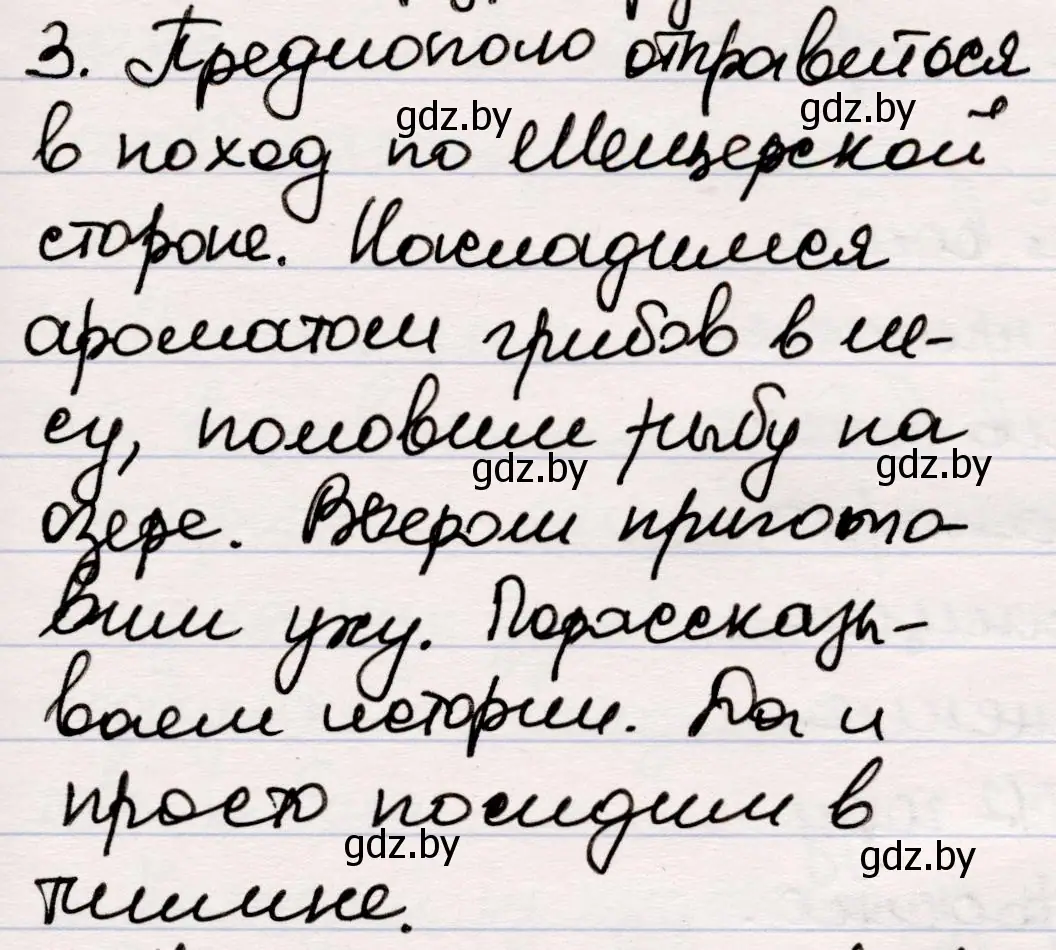 3. Предлагаю отправиться
gdz.by
gdz.by
в поход по Мещерской
стороне. Насладимся
ароматом грибов в ле-
су, половим рыбу на
gdz.by
gdz.by
озере. Вечером пригото-
вим уху. Порассказы-
ваем истории. Да и
просто посидим в
gdz.by
gdz.by
тишине.